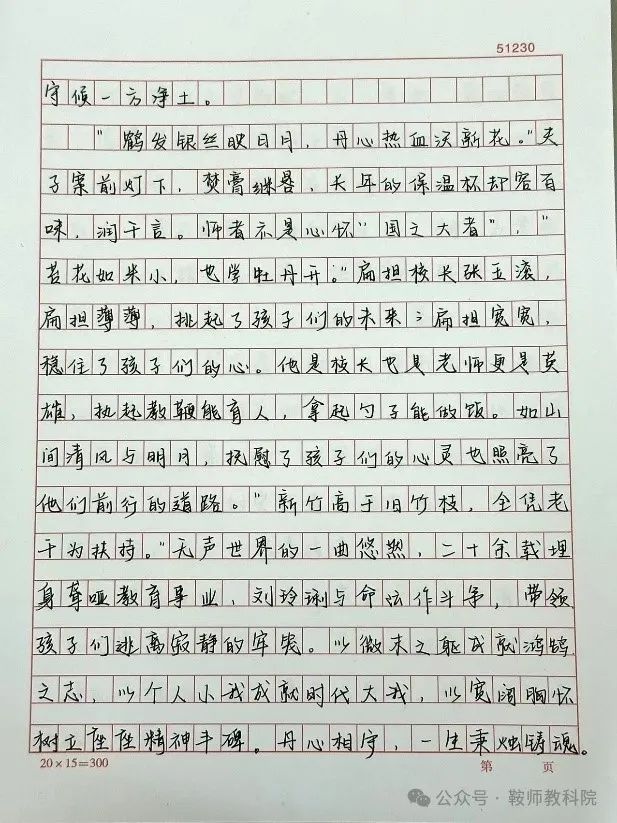 51230
守候一方净土。
"鹤发银丝映日月，丹心热血沃新花。"夫
子案前灯下，焚膏继晷，长年的保温杯却容百
味，润千言。师者亦是心怀"国之大者"，"
苔花如米小，也学牡丹开。"扁担校长张玉滚，
扁担薄薄，挑起了孩子们的未来；扁担宽宽，
稳住了孩子们的心。他是校长也是老师更是英
雄，执起教鞭能育人，拿起勺子能做饭。如山
间清风与明月，抚慰了孩子们的心灵也照亮了
他们前行的道路。"新竹高于旧竹枝，全凭老
干为扶持。"无声世界的一曲悠然，二十余载埋
身聋哑教育事业，刘玲琍与命运作斗争，带领
孩子们逃离寂静的牢笼。以微末之躯成就鸿鹄
之志，以个人小我成就时代大我，以宽阔胸怀
树立座座精神丰碑。丹心相守，一生秉烛铸魂。
20×15=300 第 页
公众号·鞍师教科院